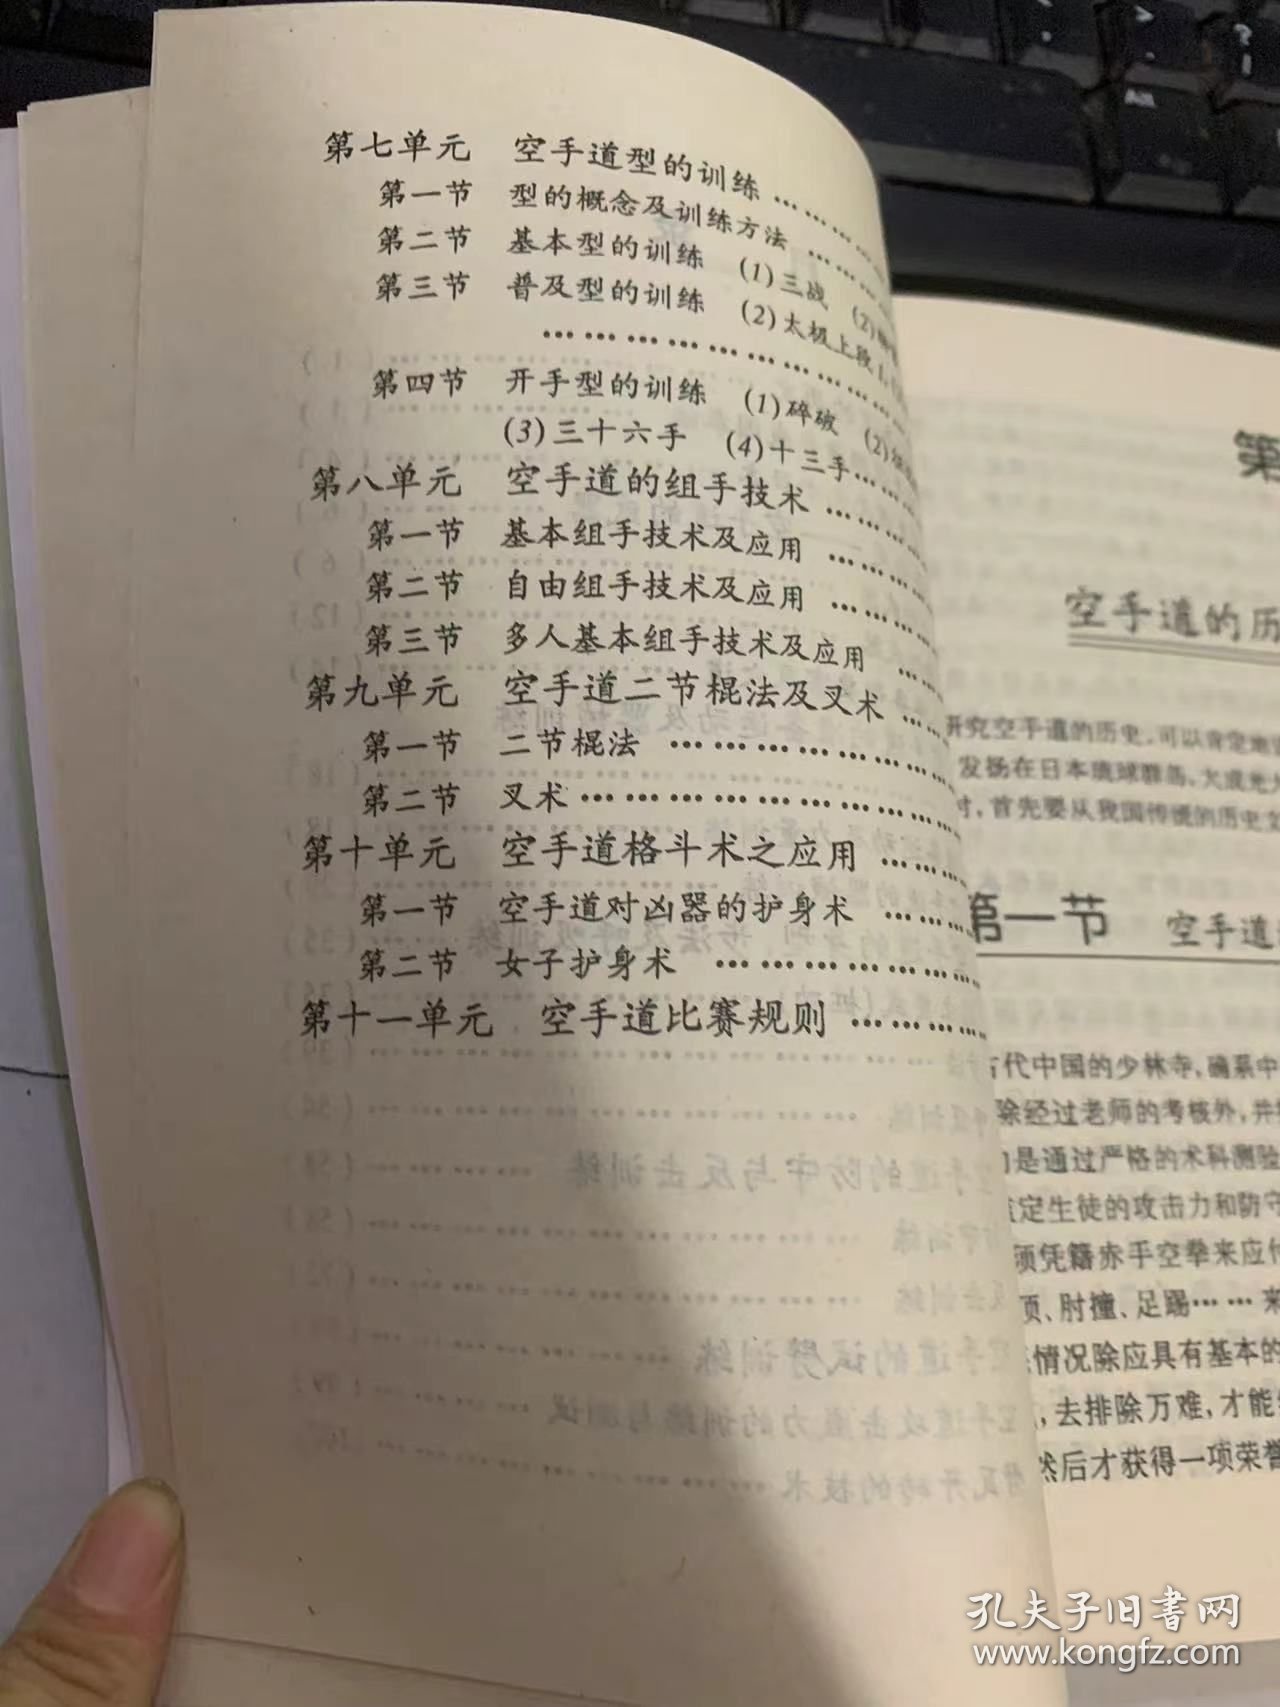 第七单元 空手道型的训练 …………
第一节 型的概念及训练方法 …………
第二节 基本型的训练 (1)三战 (2)
第三节 普及型的训练 (2)太极上段1、
………………………
第四节 开手型的训练 (1)碎破 (2)
(3)三十六手 (4)十三手………
第八单元 空手道的组手技术 …………
第一节 基本组手技术及应用 …………
第二节 自由组手技术及应用 …………
第三节 多人基本组手技术及应用 ……
第九单元 空手道二节棍法及叉术 ……
第一节 二节棍法 ………………
第二节 叉术……………………
第十单元 空手道格斗术之应用 ………
第一节 空手道对凶器的护身术 ………
第二节 女子护身术 ………………
第十一单元 空手道比赛规则 …………
第
空手道的历
研究空手道的历史,可以肯定地
发扬在日本琉球群岛,大成光大
时,首先要从我国传统的历史文
第一节 空手道
古代中国的少林寺,确系中
除经过老师的考核外,并
是通过严格的术科测验
定生徒的攻击力和防守
须凭籍赤手空拳来应付
顶、肘撞、足踢……来
情况除应具有基本的
,去排除万难,才能
然后才获得一项荣誉
孔夫子旧書网
www.kongfz.com